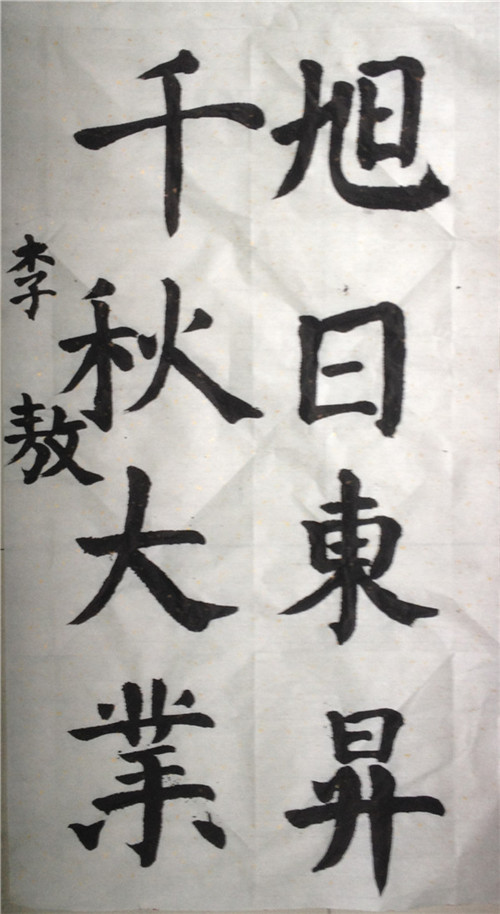 旭日東昇
千秋大業
李敖